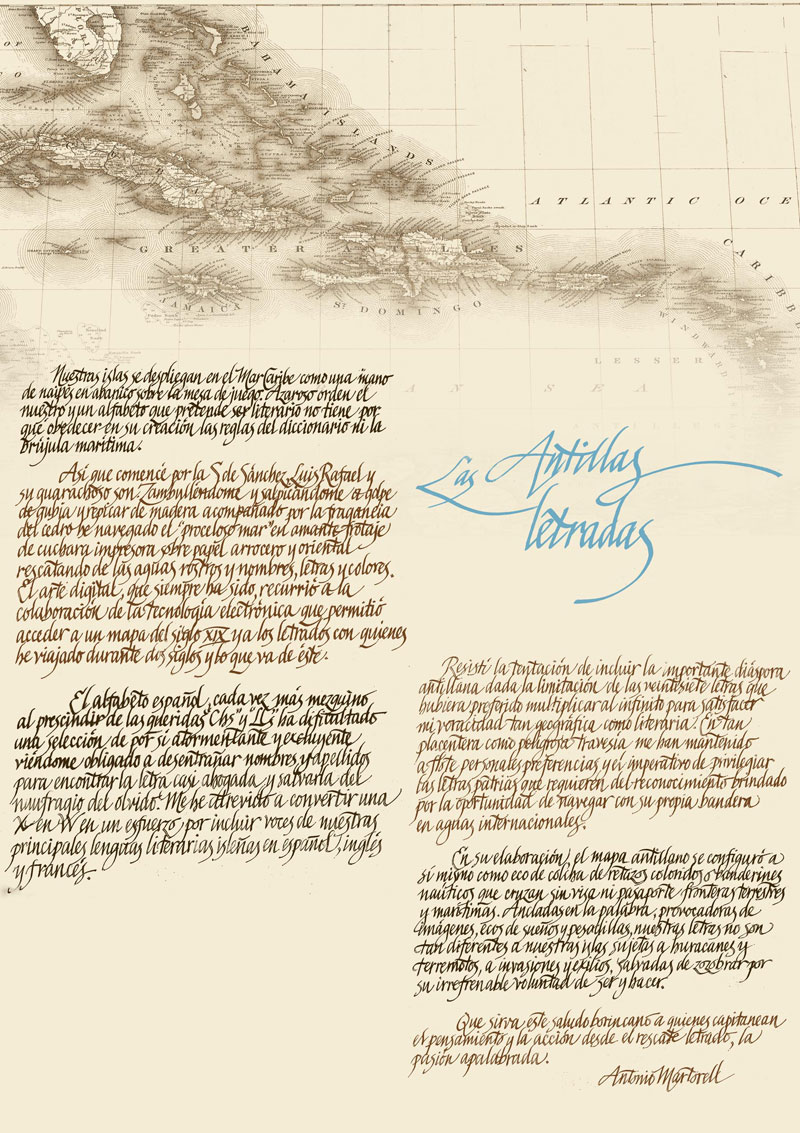 BAHAMA ISLANDS
ATLANTIC OCE
GREATER ANTILLES
JAMAICA
ST DOMINGO
CARIBB
WINDWARD
LESSER
AN SEA
ANTILLES
Nuestras islas se despliegan en el Mar Caribe como una mano
de naipes en abanico sobre la mesa de juego. Azaroso orden el
nuestro y un alfabeto que pretende ser literario no tiene por
que obedecer en su creación las reglas del diccionario ni la
brújula marítima.
Así que comencé por la S de Sánchez, Luis Rafael y
su guarachoso son. Zambulléndome y salpicándome a golpe
de gubia y repicar de madera acompañado por la fragancia
del cedro he navegado el "proceloso mar" en amante frotaje
de cuchara impresora sobre papel arrocero y oriental
rescatando de las aguas rostros y nombres, letras y colores.
El arte digital, que siempre ha sido, recurrió a la
colaboración de la tecnología electrónica que permitió
acceder a un mapa del siglo XIX y a los letrados con quienes
he viajado durante dos siglos y lo que va de éste.
El alfabeto español, cada vez más mezquino
al prescindir de las queridas "Chs" y "Ll's" ha dificultado
una selección de por sí atormentante y excluyente
viéndome obligado a desentrañar nombres y apellidos
para encontrar la letra casi ahogada y salvarla del
naufragio del olvido. Me he atrevido a convertir una
X en W en un esfuerzo por incluir voces de nuestras
principales lenguas literarias isleñas en español, inglés
y francés.
Las Antillas
letradas
Resistí la tentación de incluir la importante diáspora
antillana dada la limitación de las veintisiete letras que
hubiera preferido multiplicar al infinito para satisfacer
mi voracidad tan geográfica como literaria. En tan
placentera como peligrosa travesía me han mantenido
a flote personales preferencias y el imperativo de privilegiar
las letras patrias que requieren del reconocimiento brindado
por la oportunidad de navegar con su propia bandera
en aguas internacionales.
En su elaboración, el mapa antillano se configuró a
sí mismo como eco de colcha de retazos coloridos o banderines
naúticos que cruzan sin visa ni pasaporte fronteras terrestres
y marítimas. Ancladas en la palabra, provocadoras de
imágenes, ecos de sueños y pesadillas, nuestras letras no son
tan diferentes a nuestras islas sujetas a huracanes y
terremotos, a invasiones y exilios, salvadas de zozobrar por
su irrefrenable voluntad de ser y hacer.
Que sirva este saludo borincano a quienes capitanean
el pensamiento y la acción desde el rescate letrado, la
pasión apalabrada.
Antonio Martorell